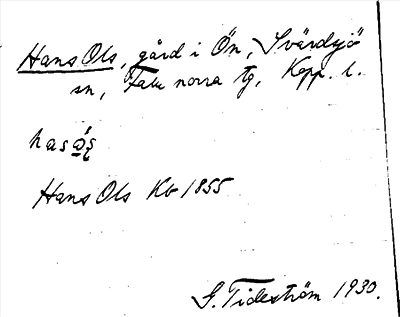 Hans Ols, gård i Ön, Svärdsjö
sn, Falu norra tg, Kopp. l.
Hans Ols Kb 1855
G. Tideström 1930.